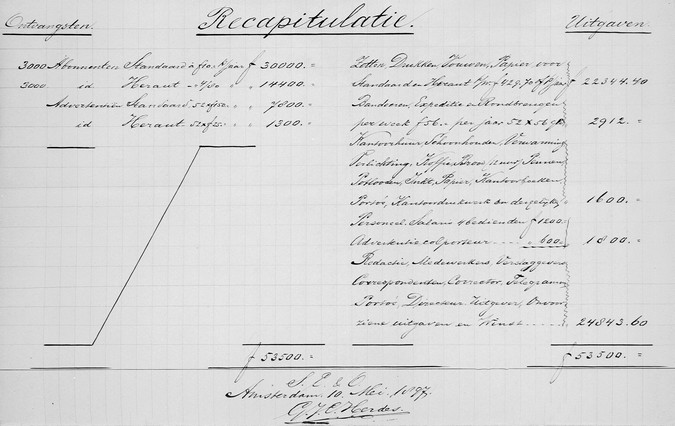 Ontvangsten.
Recapitulatie.
Uitgaven.
3000 Abonnenten Standaard à f10.- p/jaar f 30000.=
3000. id Heraut " 4/80 " " 14400.=
Advertentiën Standaard 52 x f150.= " " 7800.=
id Heraut 52 x f25.= " " 1300.=
Zetten, Drukken, Vouwen, Papier voor
Standaard en Heraut f 22344.40
Banderen, Expeditie en Rondbrengen
per week f56.= per jaar 52 x 56 2912.=
Kantoorhuur, Schoonhouden, Verwarming
Verlichting, Koffie, Brood, Pennen,
Potlooden, Inkt, Papier, Kantoorboeken
Porto's, Kantoordrukwerk en dergelijke 1600.=
Personeel Salaris 4 bedienden f 1200.=
Advertentie colporteur " 600.= 1800.=
Redactie, Medewerkers, Verslaggevers
Correspondenten, Corrector, Telegrammen
Porto's, Directeur Uitgever, Onvoor-
ziene uitgaven en Winst 24843.60
f 53500.=
f 53500.=
S. E. & O.
Amsterdam 10. Mei. 1897.